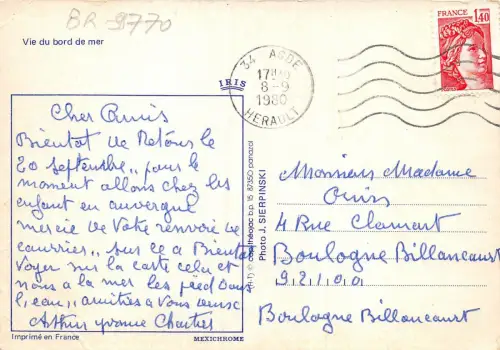 BR-9770
Vie du bord de mer
FRANCE
1,40
34 AGDE
8-9
1980
HERAULT
IRIS
Cher Amis
Bientot de Retour le
20 septembre,, pour le
moment allons chez les
enfant en auvergne
mercie de Votre renvoie de
courrier,, sur ce a Bientot
Voyer sur la carte celui et
nous a la mer les pied Dans
l'eau,, amitiées a Vous deux
Arthur yvonne
cap-théojac b.p. 15 87350 panazol
Photo J. SIERPINSKI
Monsieurs Madame
4 Rue Clamart
Boulogne Billancourt
9.2.1.0.0.1
Boulogne Billancourt
Imprimé en France
MEXICHROME